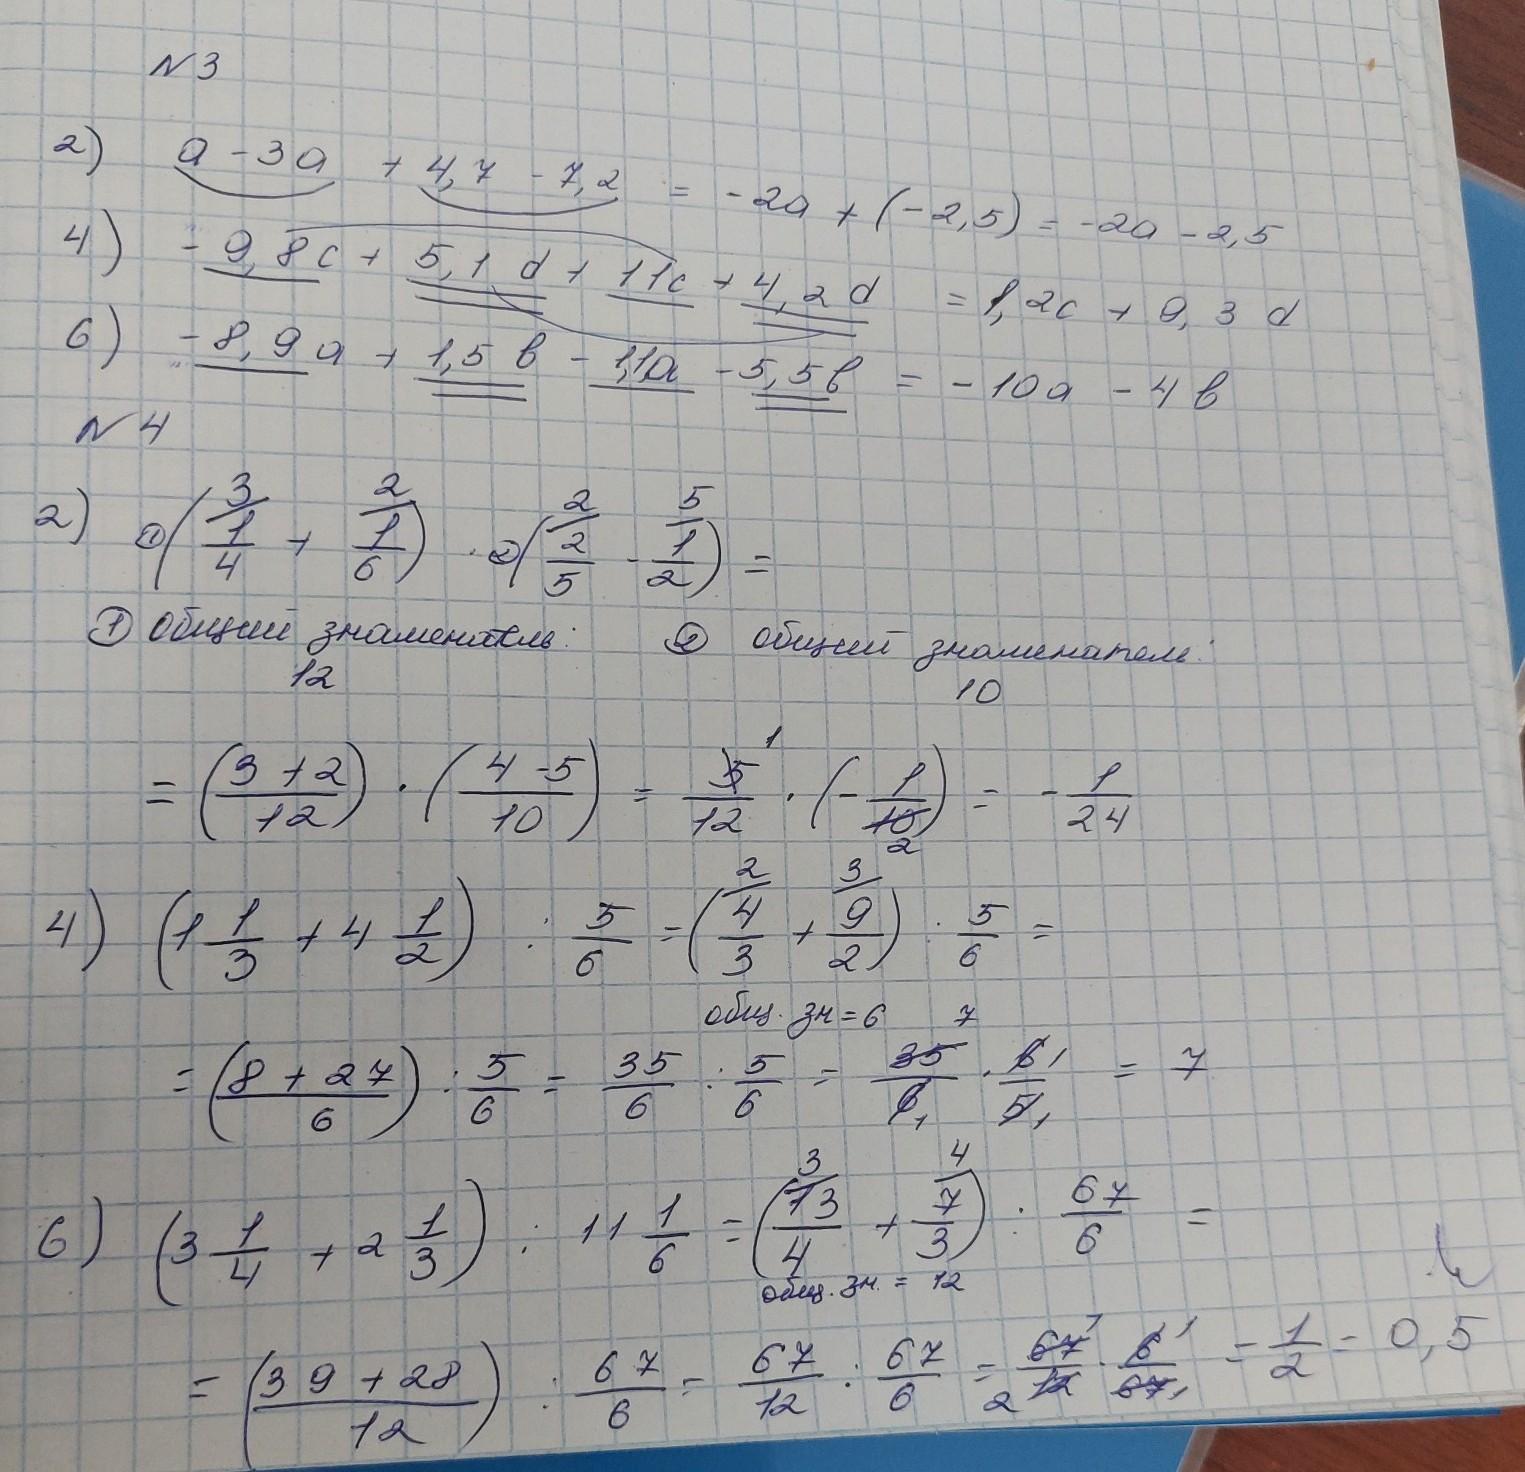 N 3
2) a - 3a + 4,7 - 7,2 = -2a + (-2,5) = -2a - 2,5
4) -9,8c + 5,1d + 11c + 4,2d = 1,2c + 9,3d
6) -8,9a + 1,5b - 1,1a - 5,5b = -10a - 4b
N 4
2) ① (3/ 1/4 + 2/ 1/6) · ② (2/ 2/5 - 5/ 1/2) =
① общий знаменатель: ② общий знаменатель:
12 10
= ((3 + 2)/12) · ((4 - 5)/10) = 5/12 1 · (- 1/10 2) = - 1/24
4) (1 1/3 + 4 1/2) : 5/6 = (2/ 4/3 + 3/ 9/2) : 5/6 =
общ. зн = 6
= ((8 + 27)/6) : 5/6 = 35/6 : 5/6 = 35/6 7 1 · 6/5 1 1 = 7
6) (3 1/4 + 2 1/3) : 11 1/6 = (3/ 13/4 + 4/ 7/3) : 67/6 =
общ. зн. = 12
= ((39 + 28)/12) : 67/6 = 67/12 : 67/6 = 67/12 1 2 · 6/67 1 1 = 1/2 = 0,5